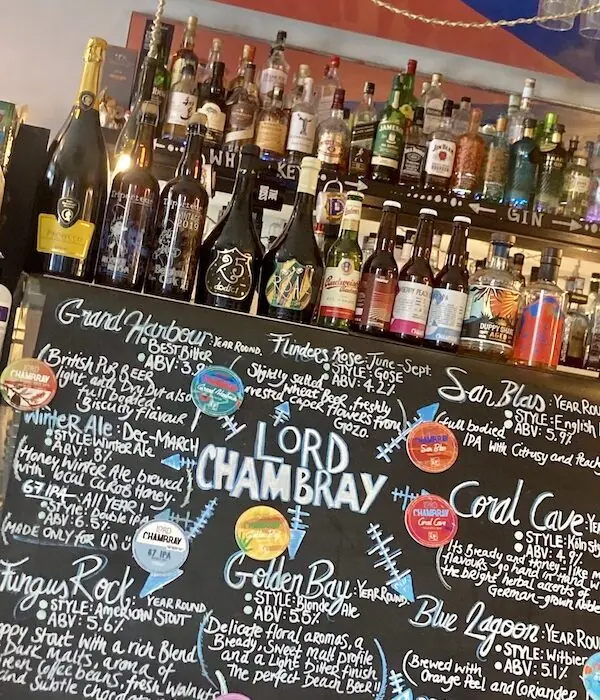 WH KEY
GIN
JAMESON
JIM BEAM
PROSECCO
2019
25
dodici
Budweiser
DUPPY SHARE
AGED
Grand Harbour: YEAR ROUND.
• BEST BITTER
• ABV: 3.9
(British Pub BEER
light and Dry but also
Full bodied
Biscuity Flavour
LORD
CHAMBRAY
Winter Ale: Dec-MARCH
• STYLE: Winter Ale
• ABV: 8%
(Honey Winter Ale, brewed
with local Carob Honey
67 IPA: All YEAR!
• Style: Double IPA
• ABV: 6.5%
(MADE ONLY FOR US
LORD
CHAMBRAY
67 IPA
Fungus Rock: YEAR ROUND
• STYLE: American STOUT
• ABV: 5.6%
ppy stout with a rich Blend
Dark Malts, aroma of
reen Coffee beans, fresh walnuts
and Subtle chocolat
Flinders Rose: June-Sept.
• STYLE: GOSE
• ABV: 4.2%
Slightly salted
wheat Beer, freshly
Caper Flowers from
Gozo.
LORD
CHAMBRAY
Golden Bay: YEAR ROUND
• STYLE: Blonde Ale
• ABV: 5.5%
(Delicate floral aromas, a
Bready, Sweet malt profile
and a Light Bitter finish
The perfect Beach Beer!!
San Blas: YEAR ROU
• STYLE: English I
• ABV: 5.7%
Full bodied
IPA with Citrusy and Peach
CHAMBRAY
San Blas
Coral Cave: YE
• STYLE: Köln Sty
• ABV: 4.9%
Its Bready and Honey-like m
flavours go hand in hand w
the bright herbal accents of
German-grown Noble
CHAMBRAY
Coral Cave
Blue Lagoon: YEAR ROU
• STYLE: Witbier
• ABV: 5.1%
(Brewed with
Orange Peel and Coriander